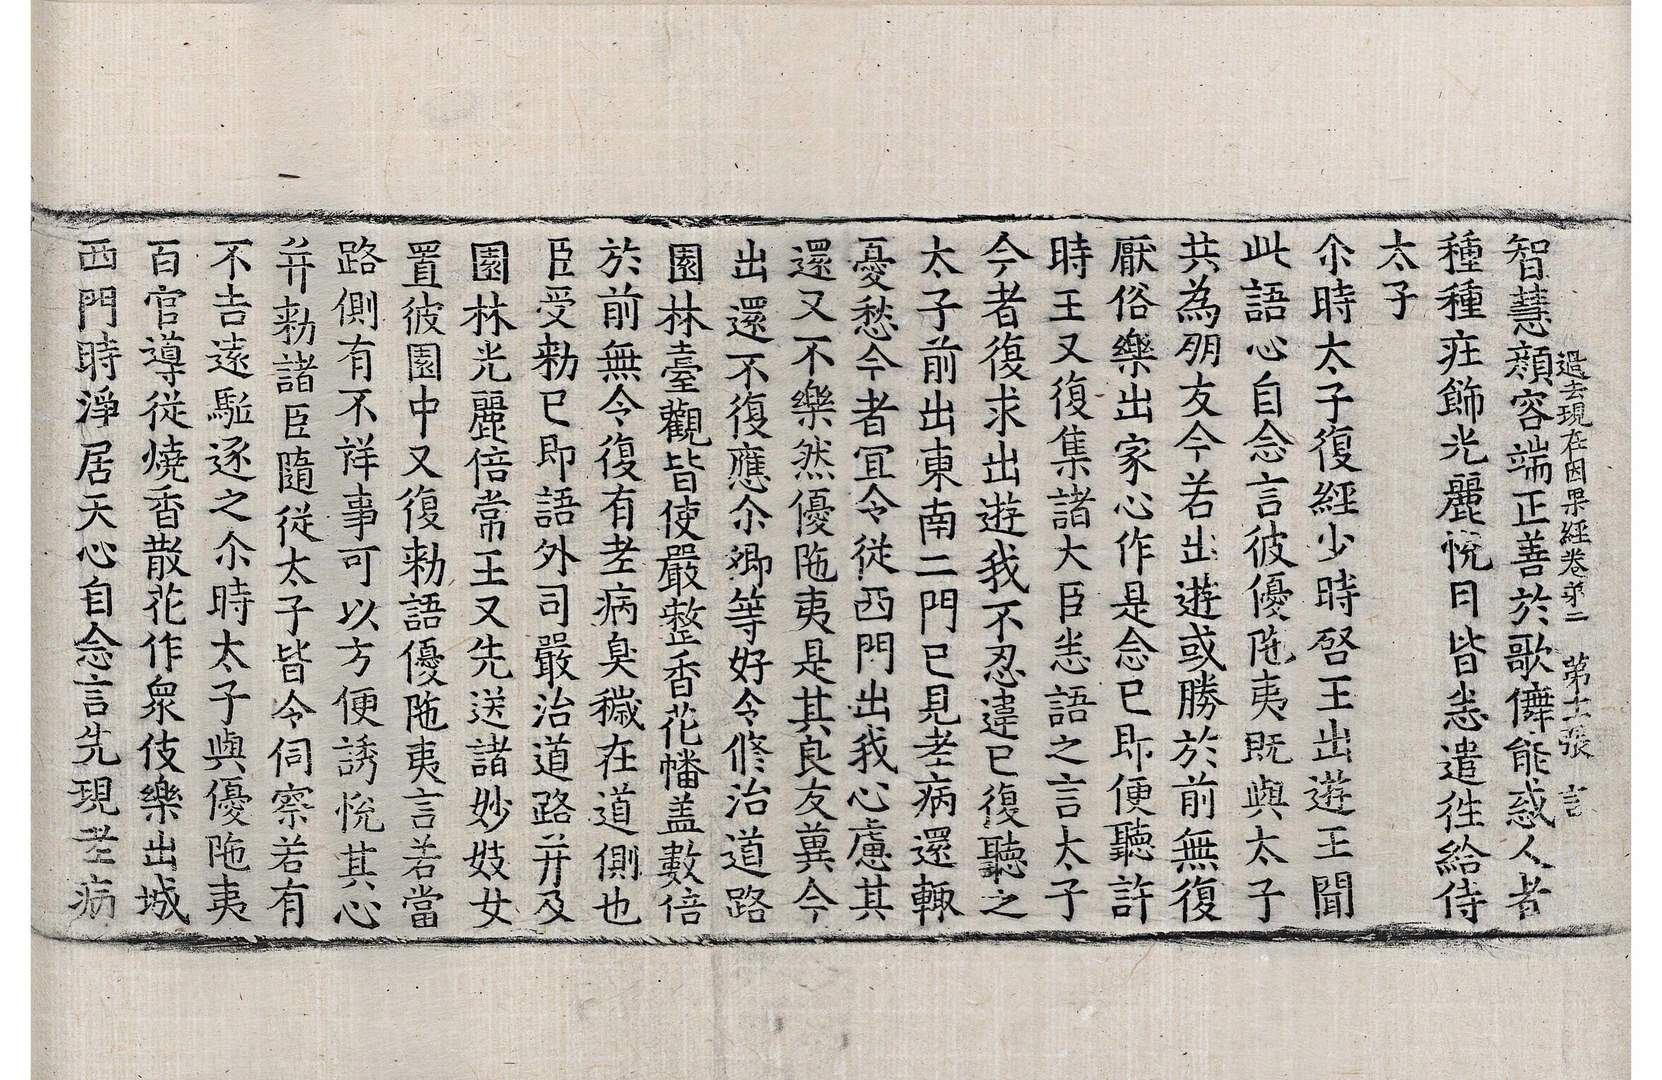 過去現在因果經卷第二　第十二張　言
智慧顔容端正善於歌儛能惑人者
種種疘飾光麗悅目皆悉遣往給侍
太子
尒時太子復經少時啓王出遊王聞
此語心自念言彼優陁夷既與太子
共為朋友今若出遊或勝於前無復
厭俗樂出家心作是念已即便聽許
時王又復集諸大臣悉語之言太子
今者復求出遊我不忍違已復聽之
太子前出東南二門已見老病還輙
憂愁今者宜令從西門出我心慮其
還又不樂然優陁夷是其良友冀今
出還不復應尒卿等好令脩治道路
園林臺觀皆使嚴整香花幡盖數倍
於前無令復有老病臭穢在道側也
臣受勑已即語外司嚴治道路并及
園林光麗倍常王又先送諸妙妓女
置彼園中又復勑語優陁夷言若當
路側有不祥事可以方便誘悅其心
并勑諸臣隨從太子皆令伺察若有
不吉遠駈逐之尒時太子與優陁夷
百官導從燒香散花作衆伎樂出城
西門時淨居天心自念言先現老病